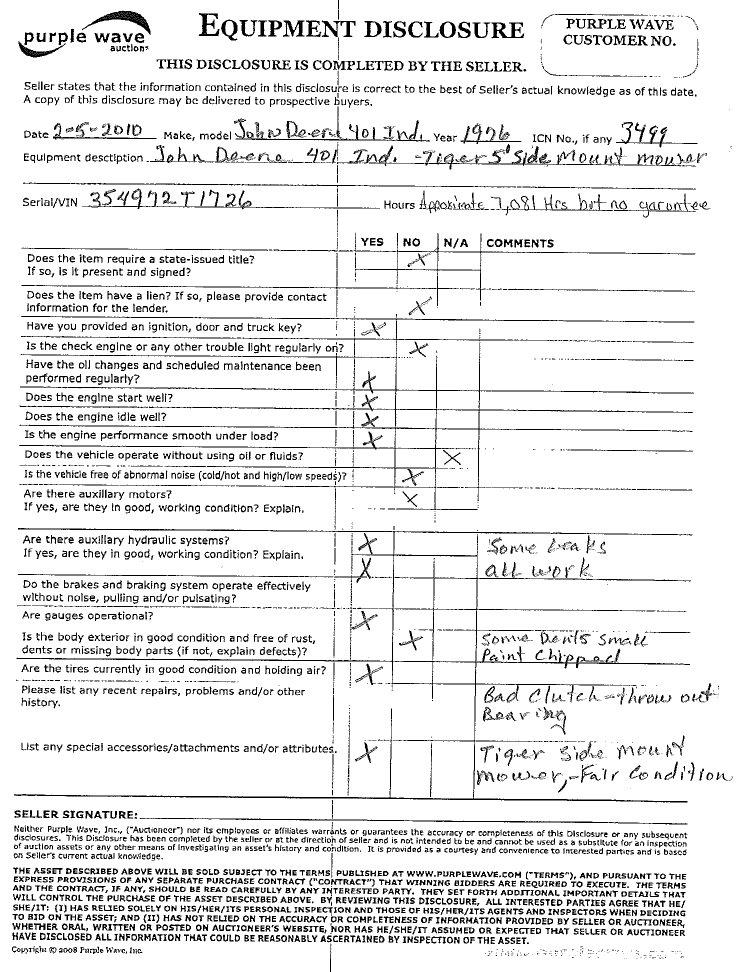 purple wave
auction®
EQUIPMENT DISCLOSURE
PURPLE WAVE
CUSTOMER NO.
THIS DISCLOSURE IS COMPLETED BY THE SELLER.
Seller states that the information contained in this disclosure is correct to the best of Seller's actual knowledge as of this date.
A copy of this disclosure may be delivered to prospective buyers.
Date 2-5-2010 Make, model John Deere 401 Ind. Year 1976 ICN No., if any 3499
Equipment desctiption John Deere 401 Ind. - Tiger 5' Side Mount mower
Serial/VIN 354972T1726 Hours Approximate 7,081 Hrs but no garuntee
YES NO N/A COMMENTS
Does the item require a state-issued title? X
If so, is it present and signed?
Does the item have a lien? If so, please provide contact
information for the lender. X
Have you provided an ignition, door and truck key? X
Is the check engine or any other trouble light regularly on? X
Have the oil changes and scheduled maintenance been
performed regularly? X
Does the engine start well? X
Does the engine idle well? X
Is the engine performance smooth under load? X
Does the vehicle operate without using oil or fluids? X
Is the vehicle free of abnormal noise (cold/hot and high/low speeds)? X
Are there auxiliary motors? X
If yes, are they in good, working condition? Explain.
Are there auxiliary hydraulic systems? X Some Leaks
If yes, are they in good, working condition? Explain. X all work
Do the brakes and braking system operate effectively
without noise, pulling and/or pulsating?
Are gauges operational? X
Is the body exterior in good condition and free of rust, X Some Dents Small
dents or missing body parts (if not, explain defects)? Paint Chipped
Are the tires currently in good condition and holding air? X
Please list any recent repairs, problems and/or other Bad Clutch - throw out
history. Bearing
List any special accessories/attachments and/or attributes. X Tiger Side Mount
Mower, - Fair Condition
SELLER SIGNATURE:
Neither Purple Wave, Inc., ("Auctioneer") nor its employees or affiliates warrants or guarantees the accuracy or completeness of this Disclosure or any subsequent
disclosures. This Disclosure has been completed by the seller or at the direction of seller and is not intended to be and cannot be used as a substitute for an inspection
of auction assets or any other means of investigating an asset's history and condition. It is provided as a courtesy and convenience to interested parties and is based
on Seller's current actual knowledge.
THE ASSET DESCRIBED ABOVE WILL BE SOLD SUBJECT TO THE TERMS PUBLISHED AT WWW.PURPLEWAVE.COM ("TERMS"), AND PURSUANT TO THE
EXPRESS PROVISIONS OF ANY SEPARATE PURCHASE CONTRACT ("CONTRACT") THAT WINNING BIDDERS ARE REQUIRED TO EXECUTE. THE TERMS
AND THE CONTRACT, IF ANY, SHOULD BE READ CAREFULLY BY ANY INTERESTED PARTY. THEY SET FORTH ADDITIONAL IMPORTANT DETAILS THAT
WILL CONTROL THE PURCHASE OF THE ASSET DESCRIBED ABOVE. BY REVIEWING THIS DISCLOSURE, ALL INTERESTED PARTIES AGREE THAT HE/
SHE/IT: (I) HAS RELIED SOLELY ON HIS/HER/ITS PERSONAL INSPECTION AND THOSE OF HIS/HER/ITS AGENTS AND INSPECTORS WHEN DECIDING
TO BID ON THE ASSET; AND (II) HAS NOT RELIED ON THE ACCURACY OR COMPLETENESS OF INFORMATION PROVIDED BY SELLER OR AUCTIONEER,
WHETHER ORAL, WRITTEN OR POSTED ON AUCTIONEER'S WEBSITE, NOR HAS HE/SHE/IT ASSUMED OR EXPECTED THAT SELLER OR AUCTIONEER
HAVE DISCLOSED ALL INFORMATION THAT COULD BE REASONABLY ASCERTAINED BY INSPECTION OF THE ASSET.
Copyright © 2008 Purple Wave, Inc.